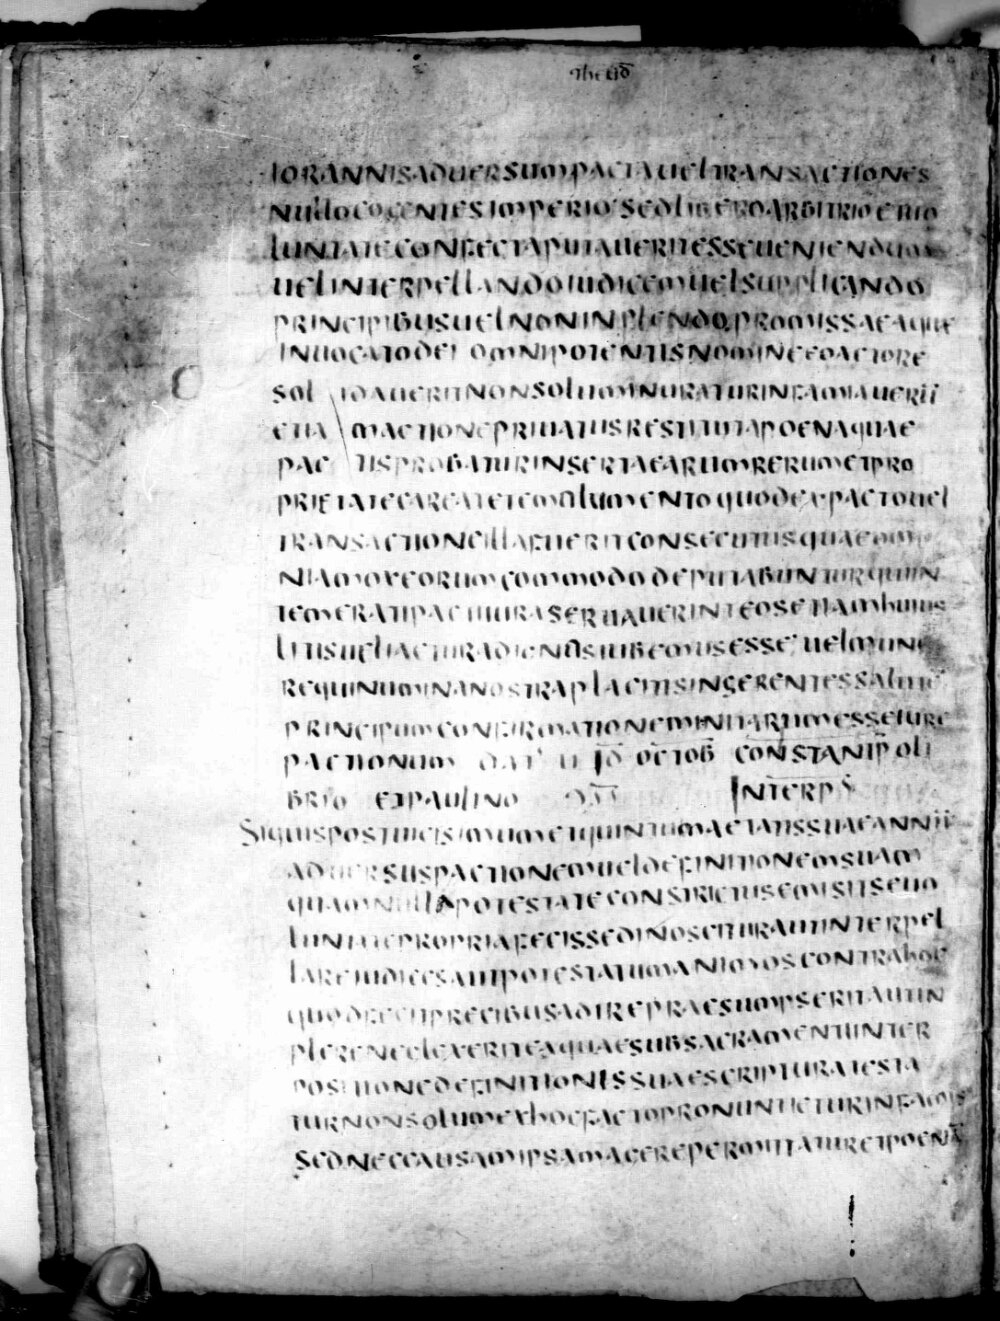 Theud
IORANNISADUERSUMPACTAUELTRANSACTIONES
NULLOCOGENTESIMPERIOSEDLIBEROARBITRIOETUO
LUNTATECONFECTAPUTAUERITESSEUENIENDUM
UELINTERPELLANDOIUDICEMUELSUPPLICANDO
PRINCIPIBUSUELNONINPLENDOPROMISSAEAQUE
INUOCATODEI OMNIPOTENTISNOMINEEOACTORE
SOL IDAUERITNONSOLUMINURATURINFAMIAUERII
ETIA MACTIONEPRIUATUSRESTITUTAPOENAQUAE
PAC TISPROBATURINSERTAEARUMRERUMETPRO
PRIETATECAREATETEMOLUMENTOQUODEXPACTOUEL
TRANSACTIONEILLAFUERITCONSECUTUSQUAEOM
NIAMOXEORUMCOMMODODEPUTABUNTURQUIIN
TEMERATIPACTIIURASERUAUERINTEOSETIAMHUIUS
LITISUELIACTURADIGNOSIUBEMUSESSE UELMUNE
REQUINOMINANOSTRAPLACITISINSERENTESSALUTE
PRINCIPUMCONFIRMATIONEMINITARUMESSEIURE
PACTIONUM DAT U ID OCTOB CONSTANTPOLI
BRIO ETPAULINO INTERPS
SIQUISPOSTUICISIMUMETQUINTUMAETATISSUAEANNII
ADUERSUSPACTIONEMUELDEFINITIONEMSUAM
QUAMNULLAPOTESTATECONSTRICTUSEMSITSEUO
LUNTATEPROPRIAFECISSEDINOSCITURAUTINTERPEL
LAREIUDICESAUTPOTESTATUMANIMOSCONTRAHOC
QUODFECITPRECIBUSADIREPRAESUMPSERITAUTIN
PLERENEGLEXERITEAQUAESUBSACRAMENTIINTER
POSITIONEDEFINITIONISSUAESCRIPTURATESTA
TURNONSOLUMEXHOCFACTOPRONUNTIETURINFAMIS
SEDNECCAUSAMIPSAMAGEREPERMITTATURETPOENA